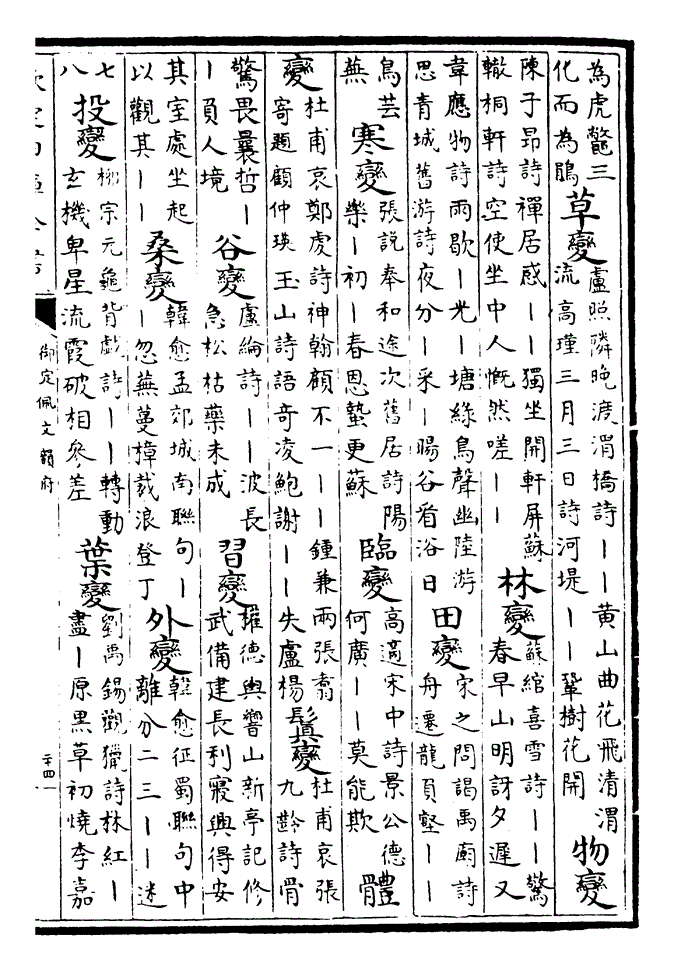 為虎鼈三
化而為鵰
草變
盧照隣晚渡渭橋詩——黄山曲花飛清渭
流高瑾三月三日詩河堤——鞏樹花開
物變
陳子昂詩禪居感——獨坐開軒屏蘇
轍桐軒詩空使坐中人慨然嗟——
林變
蘇綰喜雪詩——驚
春早山明訝夕遲又
韋應物詩雨歇—光—塘綠鳥聲幽陸游
思青城舊游詩夜分—采—暘谷看浴日
田變
宋之問謁禹廟詩
舟遷龍負壑——
鳥芸
蕪
寒變
張説奉和途次舊居詩陽
樂—初—春恩蟄更蘇
臨變
高適宋中詩景公德
何廣——莫能欺
體
變
杜甫哀鄭虔詩神翰顧不一——鍾兼兩張翥
寄題顧仲瑛玉山詩語奇凌鮑謝——失盧楊
鬒變
杜甫哀張
九齡詩骨
驚畏曩哲—
—負人境
谷變
盧綸詩——波長
急松枯藥未成
習變
權德輿響山新亭記修
武備建長利寢興得安
其室處坐起
以觀其——
桑變
韓愈孟郊城南聯句—
—忽蕪蔓樟裁浪登丁
外變
韓愈征蜀聯句中
離分二三——迷
七
八
投變
柳宗元龜背戲詩——轉動
玄機卑星流霞破相參差
葉變
劉禹錫觀獵詩林紅—
盡—原黒草初燒李嘉
御定佩文韻府